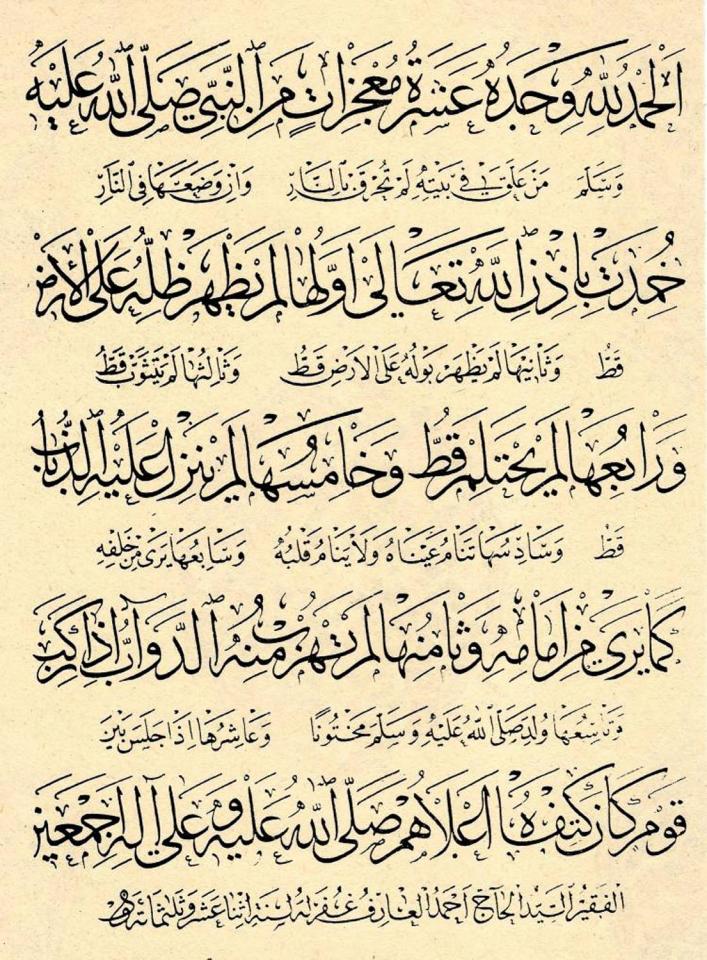 الحمد لله وحده عشرة معجزات من النبي صلى الله عليه
وسلم من علق في بيته لم تحرق بالنار وان وضعها في النار
خمدت باذن الله تعالى اولها لم يظهر ظله على الارض
قط وثانيها لم يظهر بوله على الارض قط وثالثها لم يتثوب قط
ورابعها لم يحتلم قط وخامسها لم ينزل عليه الذباب
قط وسادسها تنام عيناه ولا ينام قلبه وسابعها يرى من خلفه
كما يرى من امامه وثامنها لم تهرب منه الدواب اذا ركب
وتاسعها ولد صلى الله عليه وسلم مختونا وعاشرها اذا جلس بين
قوم كان كتفه اعلاهم صلى الله عليه وعلى آله اجمعين
الفقير السيد الحاج احمد العارف غفر له لسنة اثنا عشر وثلثمائة و